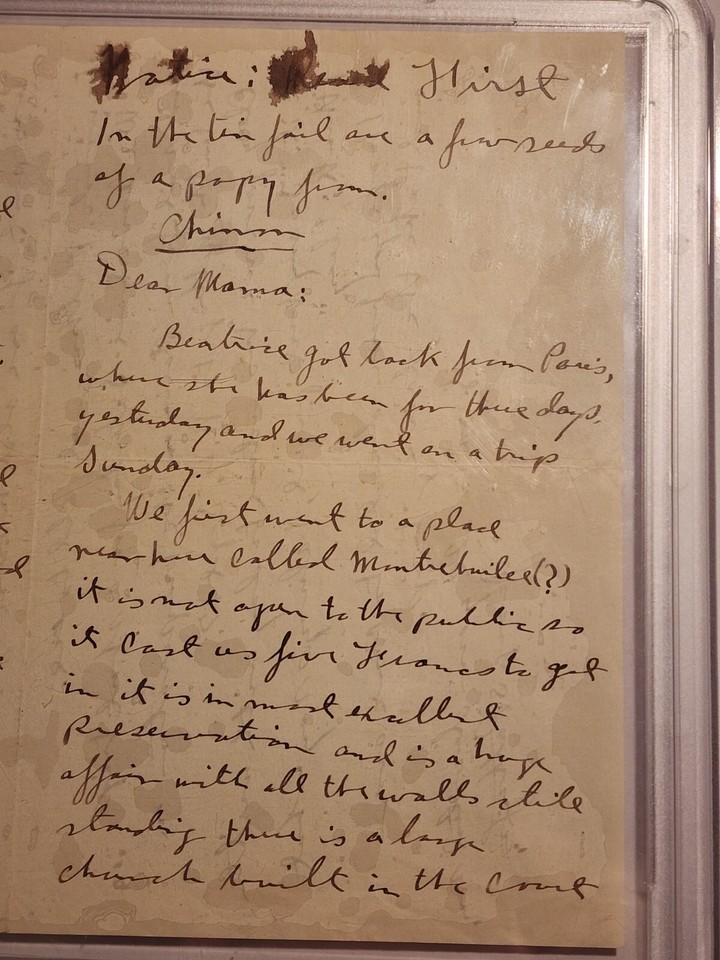 Notice: Read First
In the tin foil are a few seeds
of a popy from.
Chinon
Dear Mama:
Beatrice got back from Paris,
where she has been for three days,
yesterday and we went on a trip
Sunday.
We first went to a place
near here called Montrebuilee(?)
it is not open to the public so
it cost us five Francs to get
in it is in most excellent
preservation and is a huge
affair with all the walls stile
standing there is a large
church built in the court